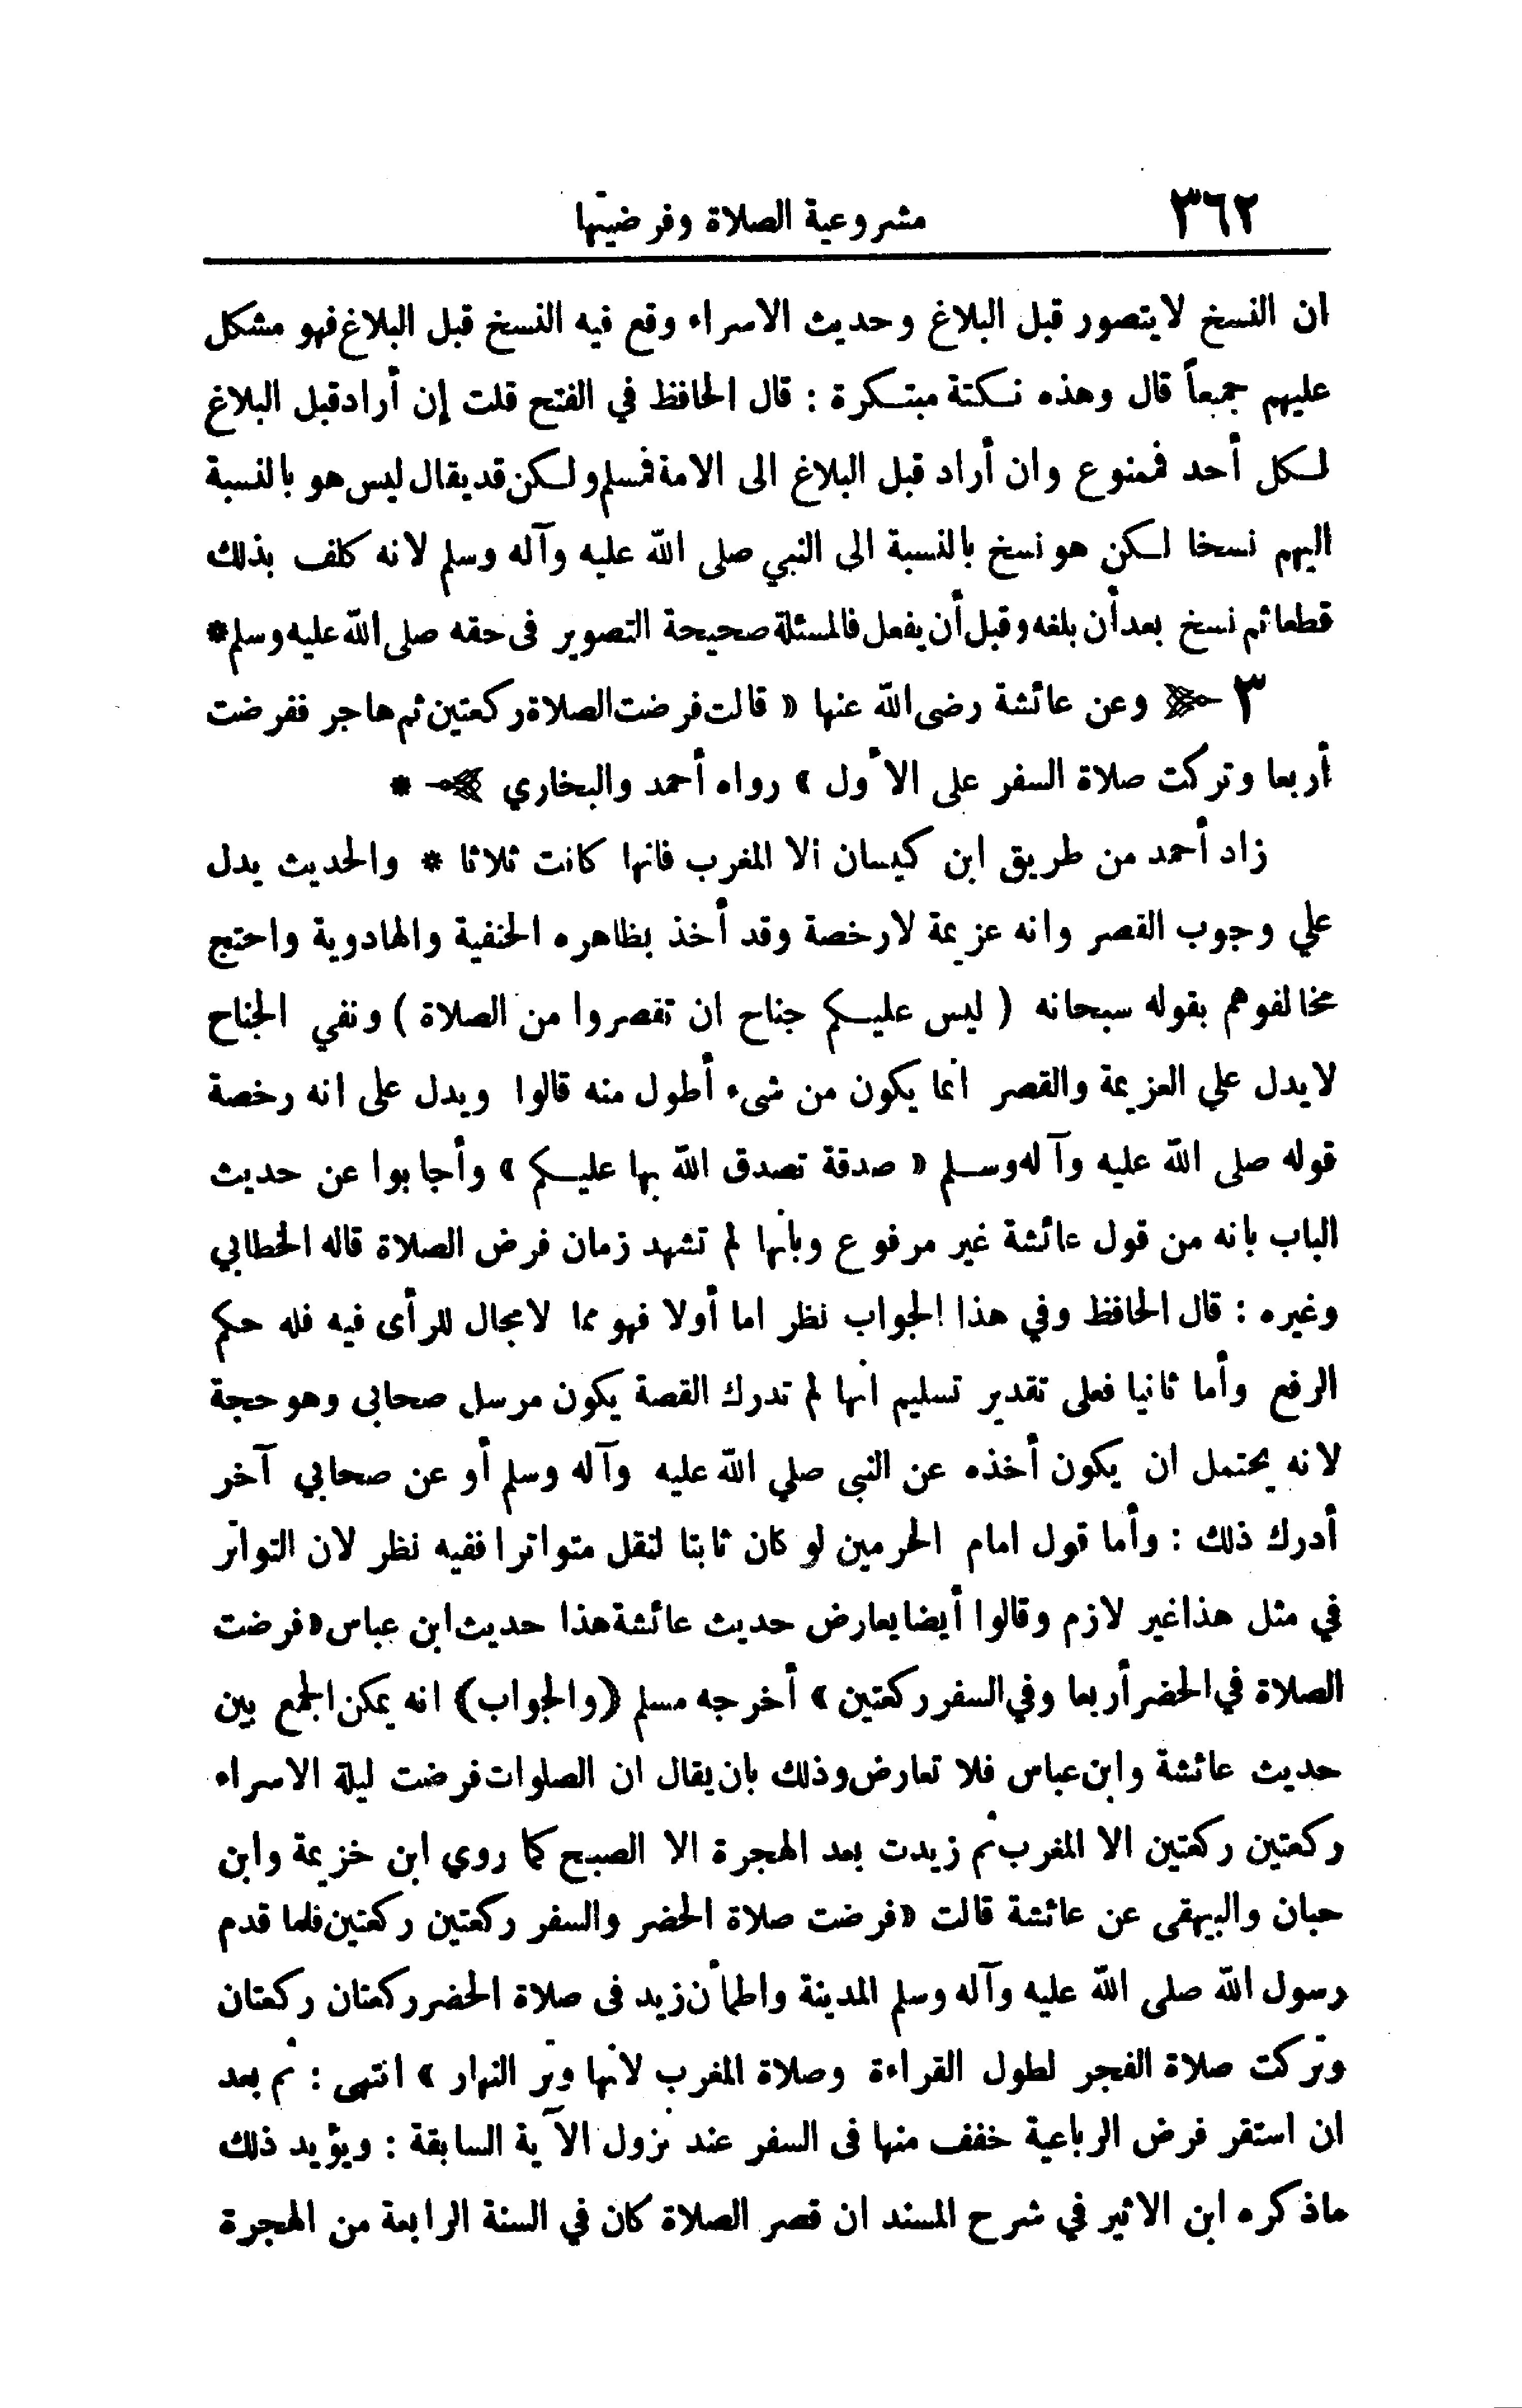 ٣٦٢ مشروعية الصلاة وفرضيتها
ان النسخ لا يتصور قبل البلاغ وحديث الاسراء وقع فيه النسخ قبل البلاغ فهو مشكل
عليهم جميعاً قال وهذه نكتة مبتكرة : قال الحافظ في الفتح قلت إن أراد قبل البلاغ
لكل أحد فممنوع وان أراد قبل البلاغ الى الامة فمسلم ولكن قد يقال ليس هو بالنسبة
اليهم نسخا لكن هو نسخ بالنسبة الى النبي صلى الله عليه وآله وسلم لانه كلف بذلك
قطعا ثم نسخ بعد أن بلغه وقبل أن يفعل فالمسئلة صحيحة التصوير فى حقه صلى الله عليه وسلم *
٣ وعن عائشة رضى الله عنها « قالت فرضت الصلاة ركعتين ثم هاجر ففرضت
أربعا وتركت صلاة السفر على الأول » رواه أحمد والبخاري *
زاد أحمد من طريق ابن كيسان الا المغرب فانها كانت ثلاثا * والحديث يدل
علي وجوب القصر وانه عزيمة لا رخصة وقد أخذ بظاهره الحنفية والهادوية واحتج
مخالفوهم بقوله سبحانه ( ليس عليكم جناح ان تقصروا من الصلاة ) ونفي الجناح
لا يدل علي العزيمة والقصر انما يكون من شىء أطول منه قالوا ويدل على انه رخصة
قوله صلى الله عليه وآله وسلم « صدقة تصدق الله بها عليكم » وأجابوا عن حديث
الباب بانه من قول عائشة غير مرفوع وبانها لم تشهد زمان فرض الصلاة قاله الخطابي
وغيره : قال الحافظ وفي هذا الجواب نظر اما أولا فهو مما لا مجال للرأى فيه فله حكم
الرفع وأما ثانيا فعلى تقدير تسليم انها لم تدرك القصة يكون مرسل صحابى وهو حجة
لانه يحتمل ان يكون أخذه عن النبى صلي الله عليه وآله وسلم أو عن صحابي آخر
أدرك ذلك : وأما قول امام الحرمين لو كان ثابتا لنقل متواترا ففيه نظر لان التواتر
في مثل هذا غير لازم وقالوا أيضا يعارض حديث عائشة هذا حديث ابن عباس «فرضت
الصلاة في الحضر أربعا وفي السفر ركعتين » أخرجه مسلم (والجواب) انه يمكن الجمع بين
حديث عائشة وابن عباس فلا تعارض وذلك بان يقال ان الصلوات فرضت ليلة الاسراء
ركعتين ركعتين الا المغرب ثم زيدت بعد الهجرة الا الصبح كما روي ابن خزيمة وابن
حبان والبيهقى عن عائشة قالت «فرضت صلاة الحضر والسفر ركعتين ركعتين فلما قدم
رسول الله صلى الله عليه وآله وسلم المدينة واطمأن زيد فى صلاة الحضر ركعتان ركعتان
وتركت صلاة الفجر لطول القراءة وصلاة المغرب لانها وتر النهار » انتهى : ثم بعد
ان استقر فرض الرباعية خفف منها فى السفر عند نزول الآية السابقة : ويؤيد ذلك
ماذكره ابن الاثير في شرح المسند ان قصر الصلاة كان في السنة الرابعة من الهجرة